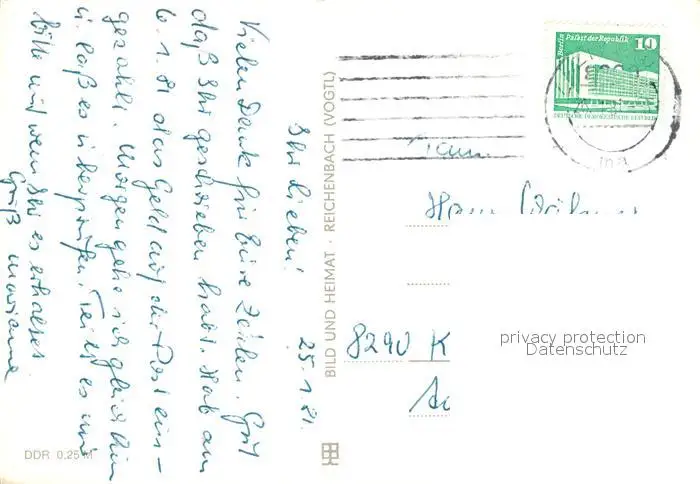 25.1.81.
Ihr Lieben!
Vielen Dank für Eure Zeilen. Gut
daß Ihr geschrieben habt. Hab am
6.1.81 das Geld auf der Post ein-
gezahlt. Morgen gehe ich gleich hin
u. laß es überprüfen. Teilt es mir
bitte mit wenn Ihr es erhaltet.
Gruß Marianne
BILD UND HEIMAT · REICHENBACH (VOGTL)
DDR 0,25 M
Berlin Palast der Republik
10
DEUTSCHE DEMOKRATISCHE REPUBLIK
Fam.
8290 K
privacy protection
Datenschutz